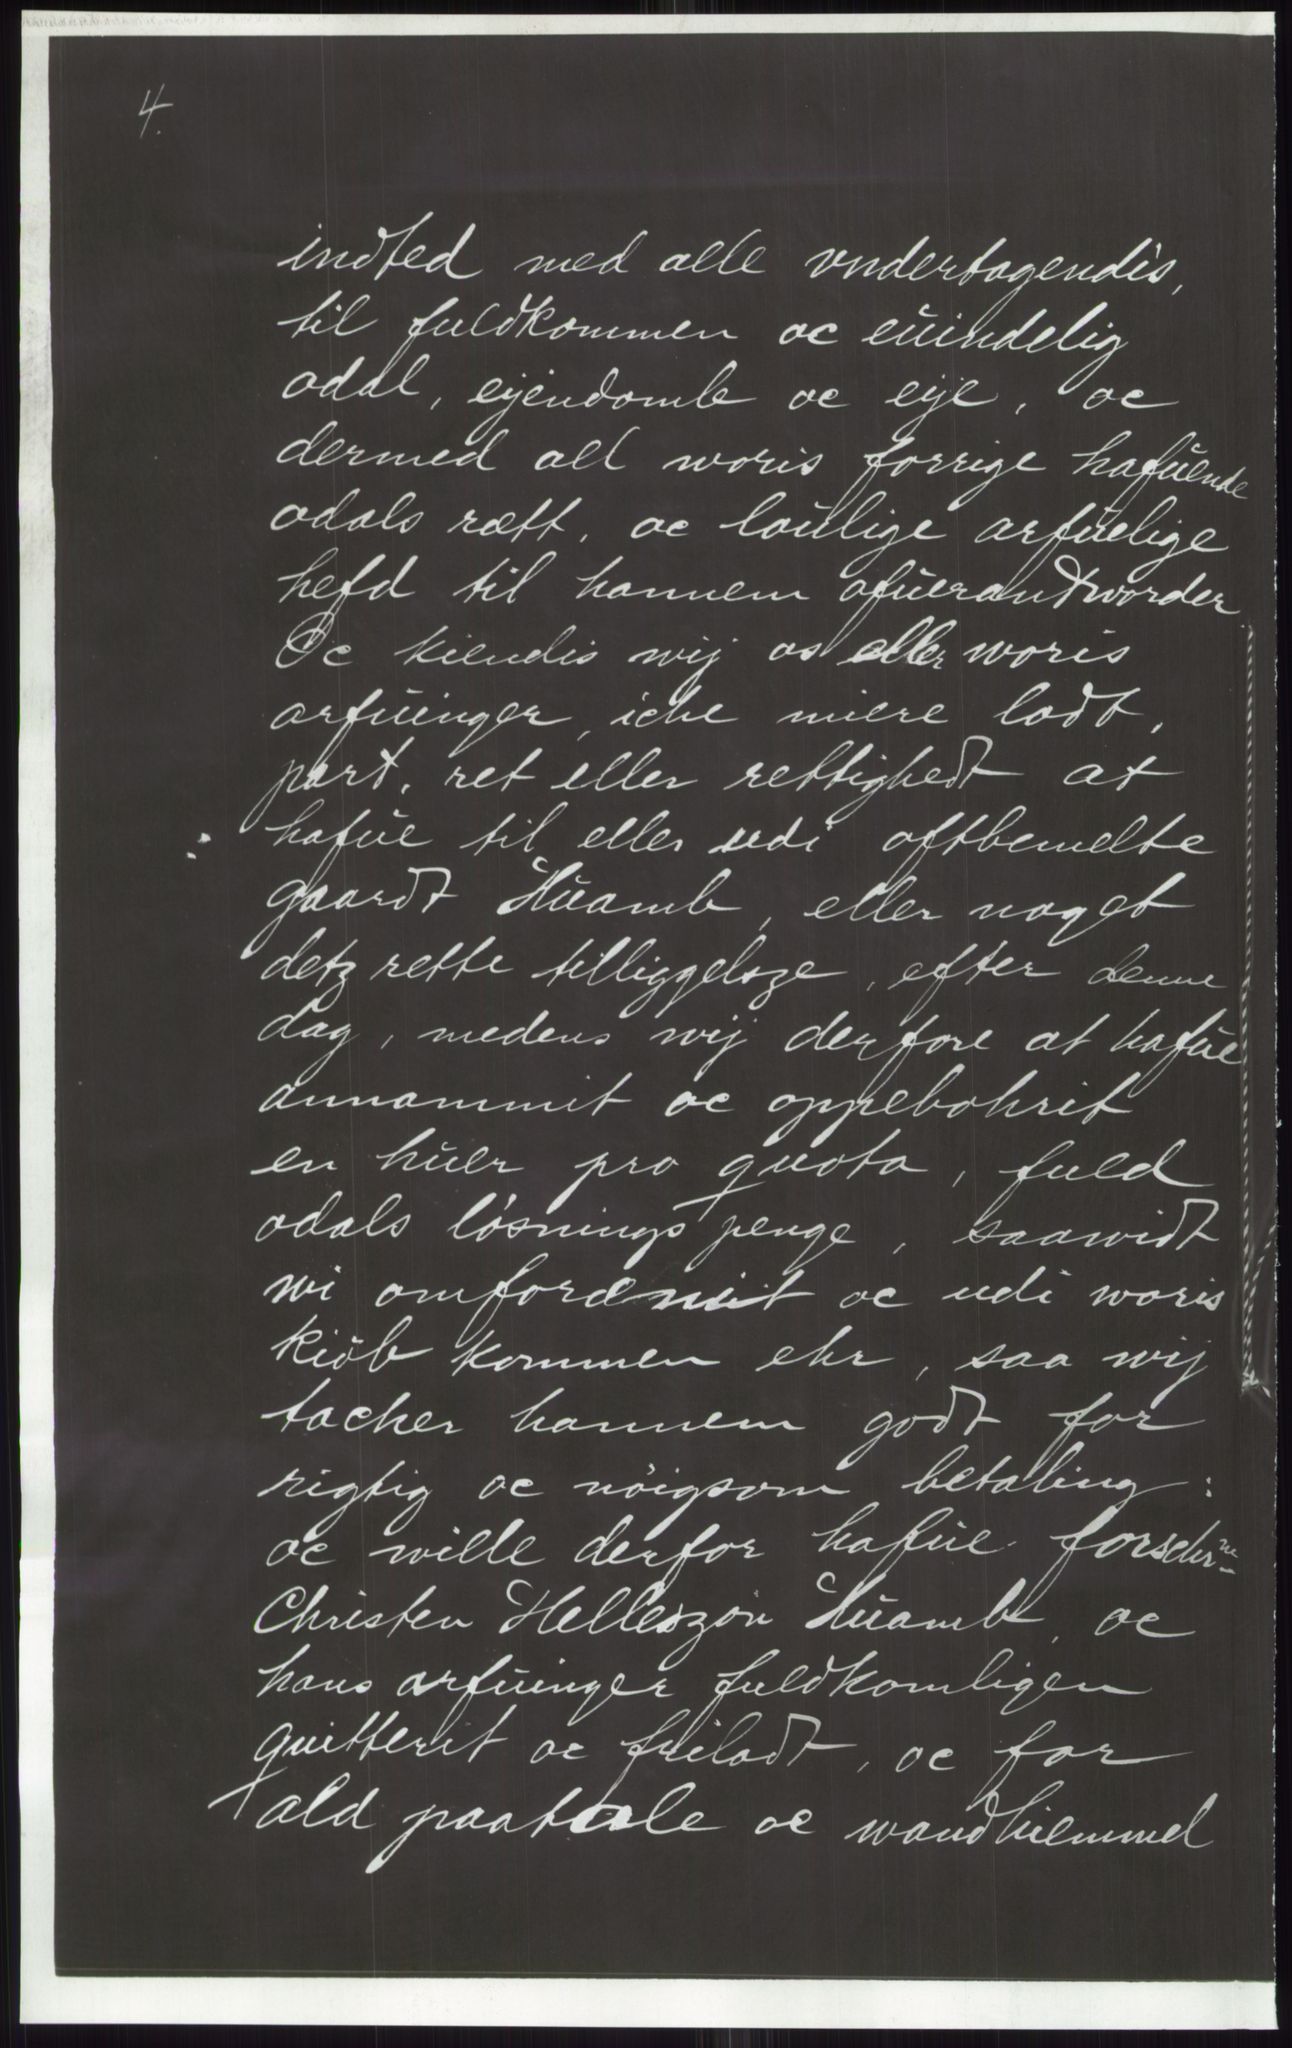 4.
indted med alle vndertagendis,
til fuldkommen oc eŭindelig
odal, eijendomb oc eije, oc
dermed all woris forrige hafŭende
odals rætt, oc loŭlige arfŭelige
hefd til hannem ofŭerandtworder
Oc kiendis wij os eller woris
arfŭinger, iche miere lodt,
part, ret eller rettighedt at
hafŭe til eller udi oftbemelte
gaardt Hŭamb, eller noget
detz rette tilliggelsze, efter denne
dag, medens wij derfore at hafŭe
annammit oc oppebohrit
en hŭer pro quota, fuld
odals løsnings penge, saawidt
wi omforenit oc udi woris
kiøb kommen ehr, saa wij
tacker hannem godt for
rigtig oc nøigsom betaling:
oc wille derfor hafŭe forschrne
Christen Helleszøn Hŭamb, oc
hans arfŭinger fuldkomligen
quitterit oc friladt, oc for
ald paatale oc wandhiemmel